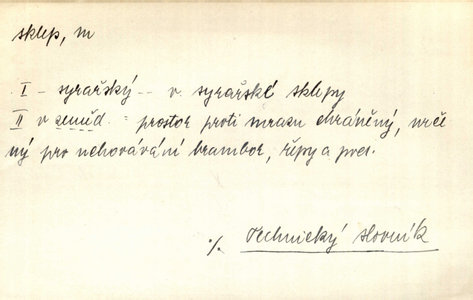 sklep, m
I - syrařský -- v. syrařské sklepy
II v zeměd. - prostor proti mrazu chráněný, urče
ný pro uchovávání brambor, řepy a pod.
%. Technický slovník